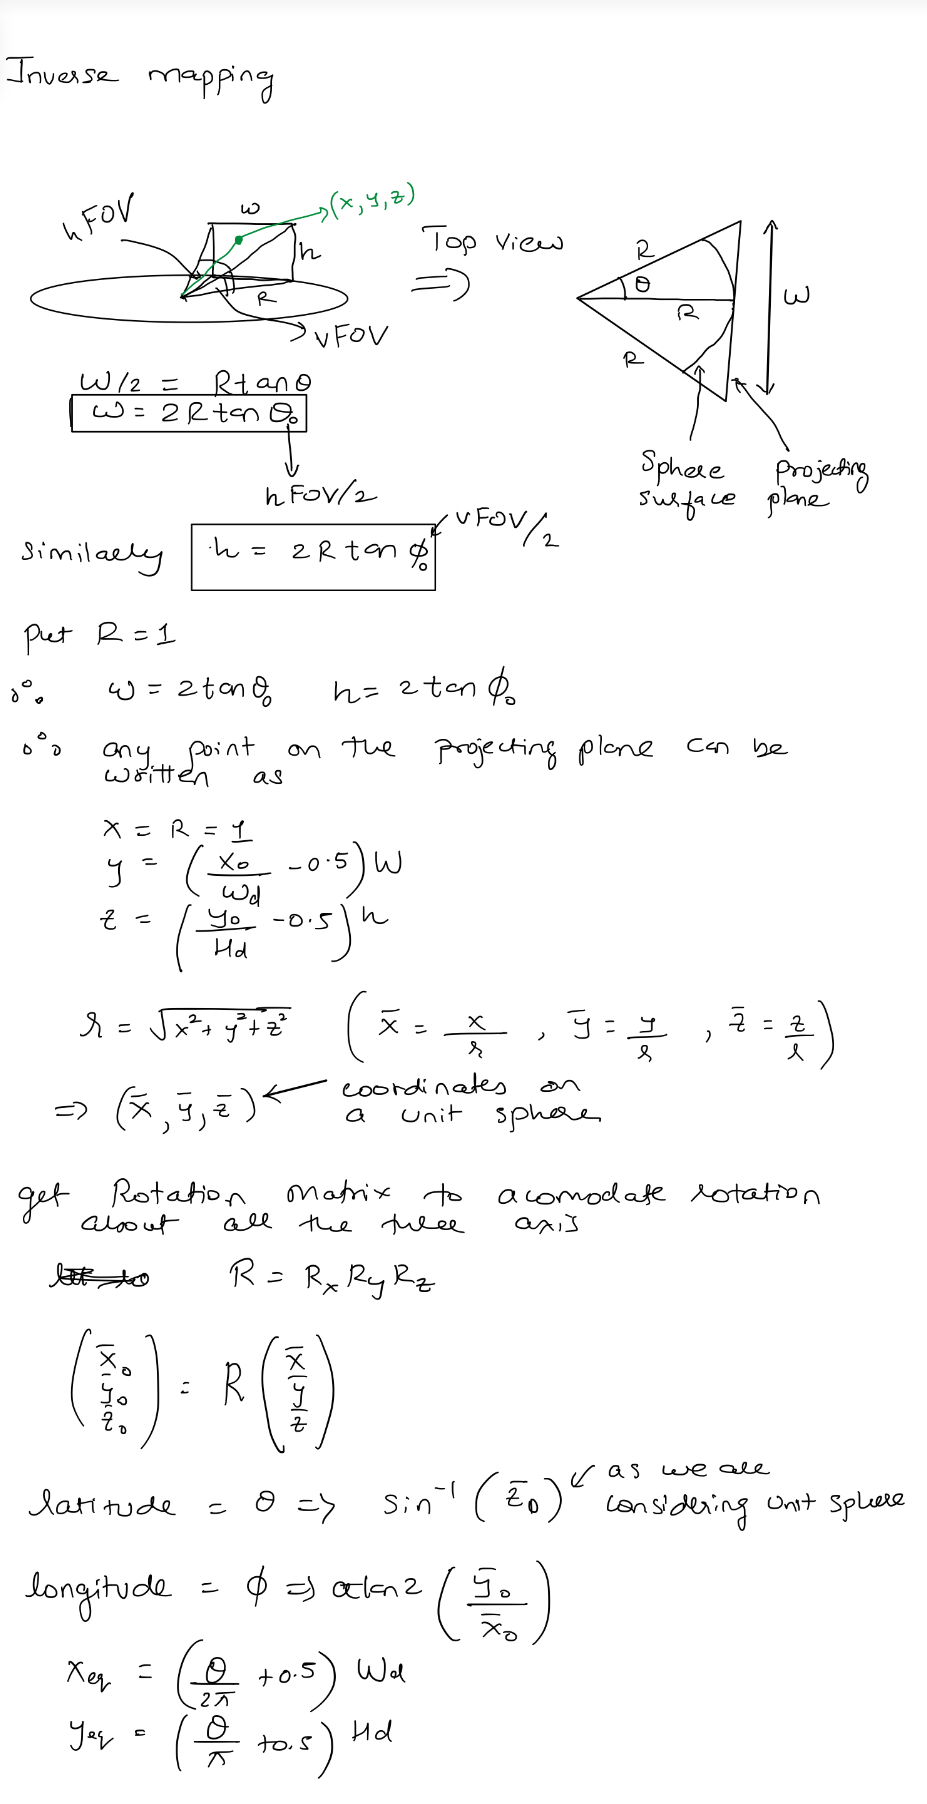 Inverse mapping
hFOV
w
(x,y,z)
h
R
vFOV
Top view
⇒
R
θ
R
R
W
Sphere surface
projecting plane
W/2 = R tan θ
ω = 2 R tan θ₀
hFOV/2
Similarly h = 2 R tan φ₀
vFOV/2
put R = 1
∴ ω = 2 tan θ₀ h = 2 tan φ₀
∴ any point on the projecting plane can be
written as
x = R = 1
y = (x₀/Wd - 0.5) W
z = (y₀/Hd - 0.5) h
r = √x²+y²+z² (x̄ = x/r , ȳ = y/r , z̄ = z/r)
⇒ (x̄, ȳ, z̄) ← coordinates on
a unit sphere
get Rotation matrix to acomodate rotation
about all the three axis
R = Rx Ry Rz
(x̄₀ ȳ₀ z̄₀) = R (x̄ ȳ z̄)
latitude = θ ⇒ sin⁻¹ (z̄₀)
as we are
considering unit sphere
longitude = φ ⇒ atan2 (ȳ₀/x̄₀)
xeq = (θ/2π + 0.5) Wd
yeq = (θ/π + 0.5) Hd